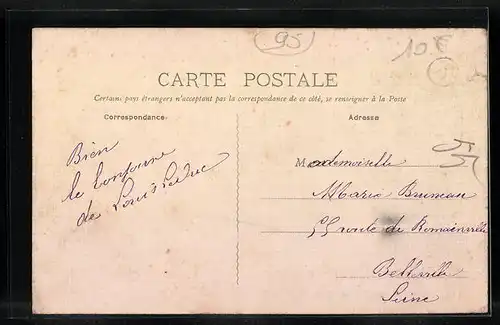 95
10€
CARTE POSTALE
Certains pays étrangers n'acceptant pas la correspondance de ce côté, se renseigner à la Poste
Correspondance.
Adresse
Bien
le bonjour
de Louis Leduc
Mademoiselle
Maria Bruneau
route de Romainville
Belleville
Seine